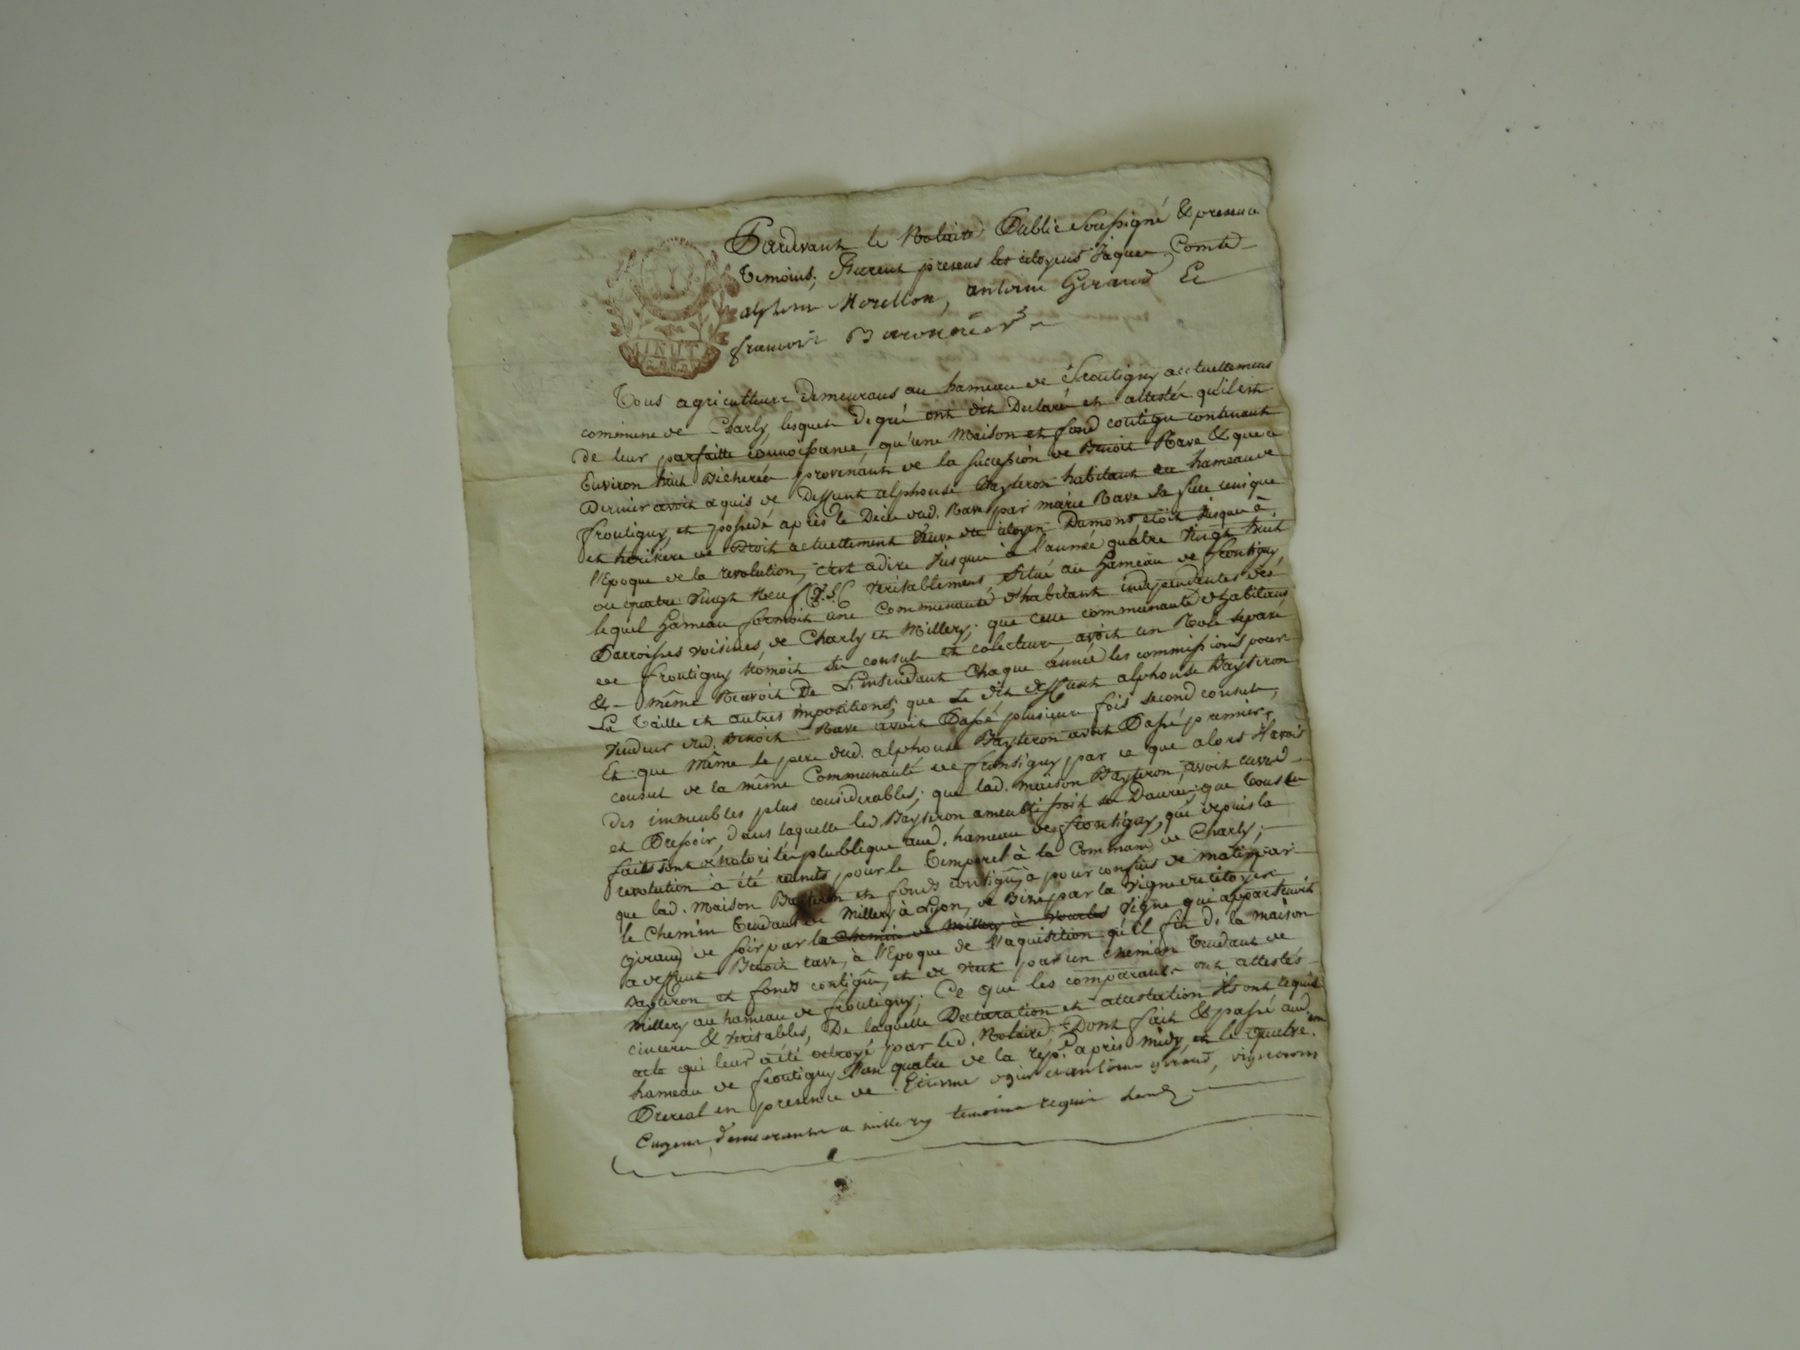 Pardvant le Notaire Public Soussigné & presence
temoins, Furent presens les citoyens Jaques Comte
MINUTE
Morellon, antoine Giraud Et
francois
Tous agriculteurs demeurans au hameau de Froutigny actuellement
commune de Charly, lesquels de gré ont dit Declaré et attesté qu'il est
de leur parfaitte connoissance, qu'une Maison et fond contigu contenant
Environ huit Bicherées provenant de la succession de Benoit Rave & que ce
Dernier avoit aquis de Deffunt alphonse Bayteron habitant au hameau de
froutigny, et possedé après le Decès dud. Rave par marie Rave Sa fille unique
et heritiere de Droit actuellement veuve du citoyen Dumont, etoit Jusque à
l'Epoque de la revolution, c'est adire Jusque à l'année quatre vingt huit
ou quatre vingt neuf veritablement situé au hameau de froutigny
lequel hameau formoit une Communauté d'habitant independentes des
Parroisses voisines, de Charly et Millery; que cette communauté d'habitans
de froutigny nomoit Son consul et colecteur, avoit un Role separé
& même Recevoit De L'intendant Chaque année les commissions pour
La Taille et autres impositions; que Le dit deffunt alphonse Bayteron
vendeur dud. Benoit Rave avoit Passé plusieurs fois second consul,
Et que même le pere dud. alphonse Bayteron avoit Passé premier
consul de la même Communauté de froutigny par ce que alors Il avoit
des immeubles plus considerables; que lad. maison Bayteron, avoit cuve
et Pressoir, dans laquelle led. Bayteron que tous ces
faits sont de notorité publique aud. hameau de froutigny, qui depuis la
revolution a été réunis pour le Temporel à la Commune de Charly;
que lad. Maison Bayteron et fonds contigu, à pour confins de matin
le Chemin Tendant de Millery à Lyon, de Bize par la vigne du citoyen
Giraud de soir par la chemin de Millery à vigne qui appartenoit
a deffunt Benoit rave, à l'Epoque de l'aquisition qu'il fit de la maison
Bayteron et fonds contigu, et de vent par un chemin Tendant de
Millery au hameau de froutigny; Ce que les comparants ont attestés
cincere & veritables, De laquelle Declaration et attestation ils ont requis
acte qui leur a été octroyé par led. Notaire. Dont fait & passé aud.
hameau de froutigny l'an quatre de la rep.e apres midy, et le quatre
Prereal en presence de Etienne et antoine giraud, vignerons
demeurants a millery temoins requis